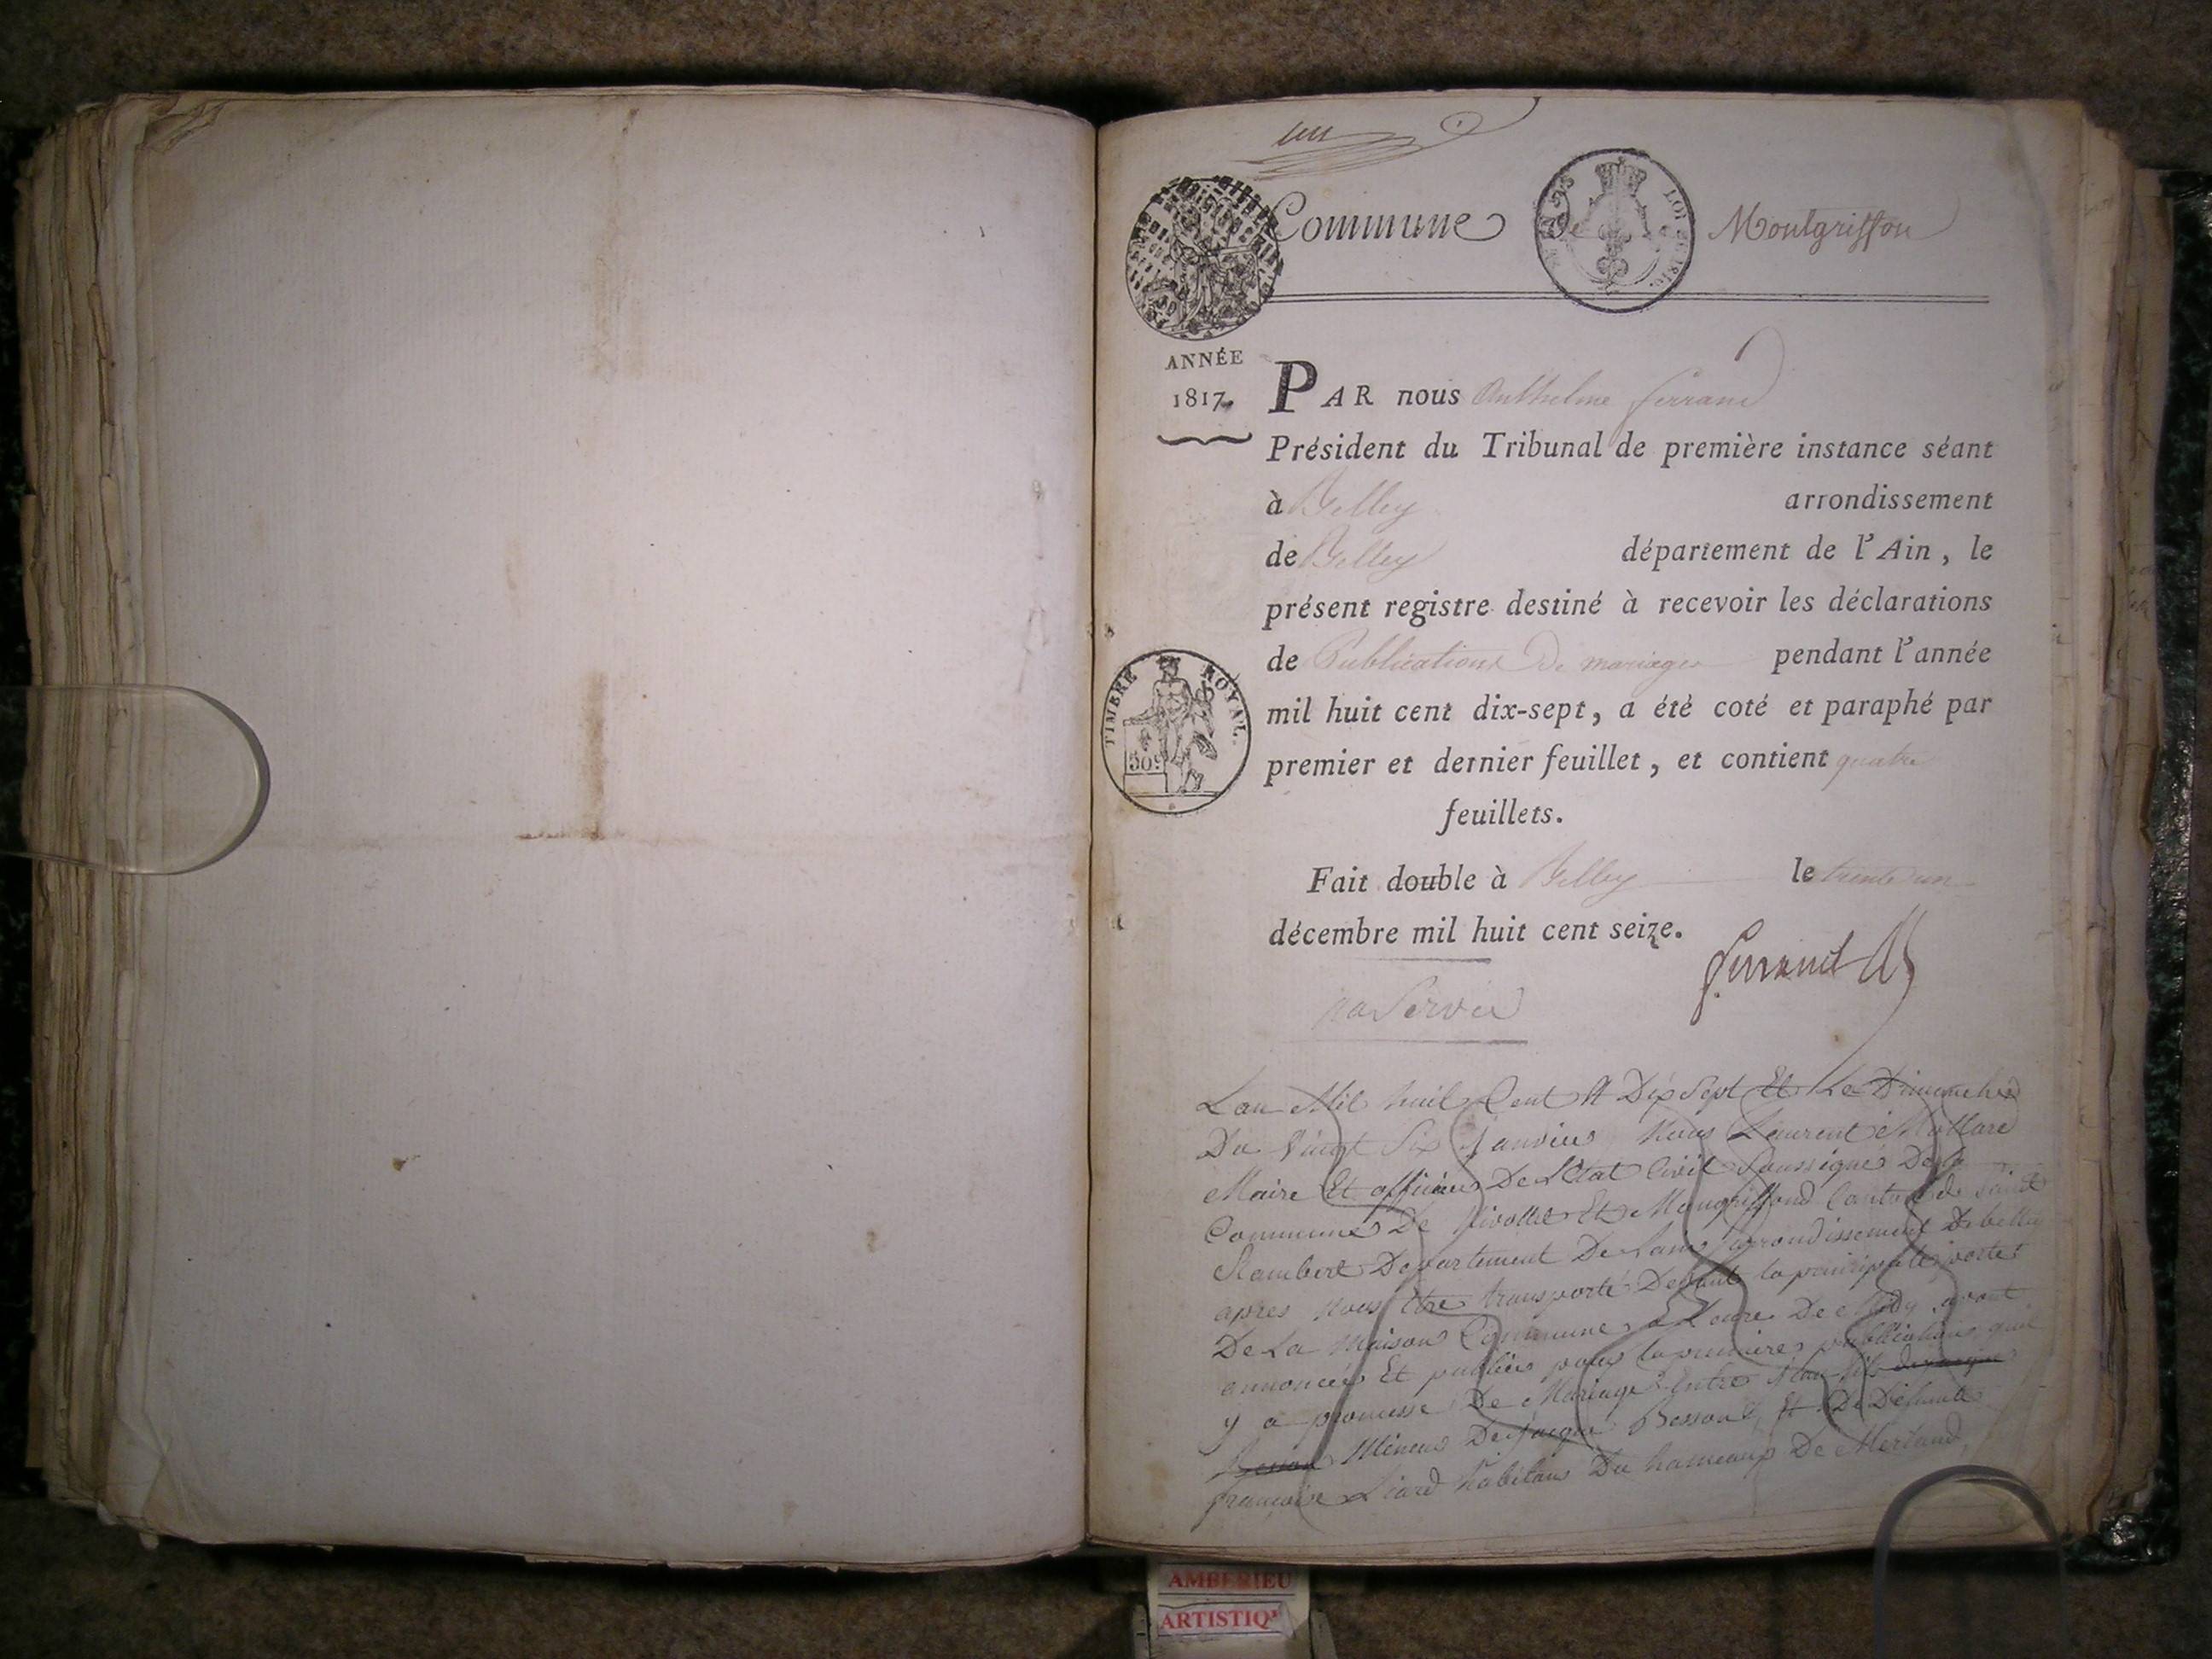 un
Commune de Montgriffon
LOI DE 1816.
ANNÉE
1817.
PAR nous Anthelme ferrand
Président du Tribunal de première instance séant
à Belley arrondissement
de Belley département de l'Ain, le
présent registre destiné à recevoir les déclarations
de Publications De mariages pendant l'année
TIMBRE ROYAL
50c
mil huit cent dix-sept, a été coté et paraphé par
premier et dernier feuillet, et contient quatre
feuillets.
Fait double à Belley le trente un
décembre mil huit cent seize.
ferrand
L'an Mil huil Cent Dix Sept Et Le Dimanche
Du Vingt Six Janvier Nous Laurent Mollard
Maire Et officier De L'Etat Civil Soussigné De la
Commune De Nivollet Et Mongriffond Canton de saint
Rambert Departement De Lain arrondissement De belley
apres nous être transporté Devant la principale porte
De La Maison Commune a L'eure De Midy avont
annoncée Et publiée pour la premiere publication quil
y a promesse De Mariage Entre
Mineur De Jacque Besson Et De Défunte
françoise Liard habitans Du hameaux De Merland
AMBERIEU
ARTISTIQ'